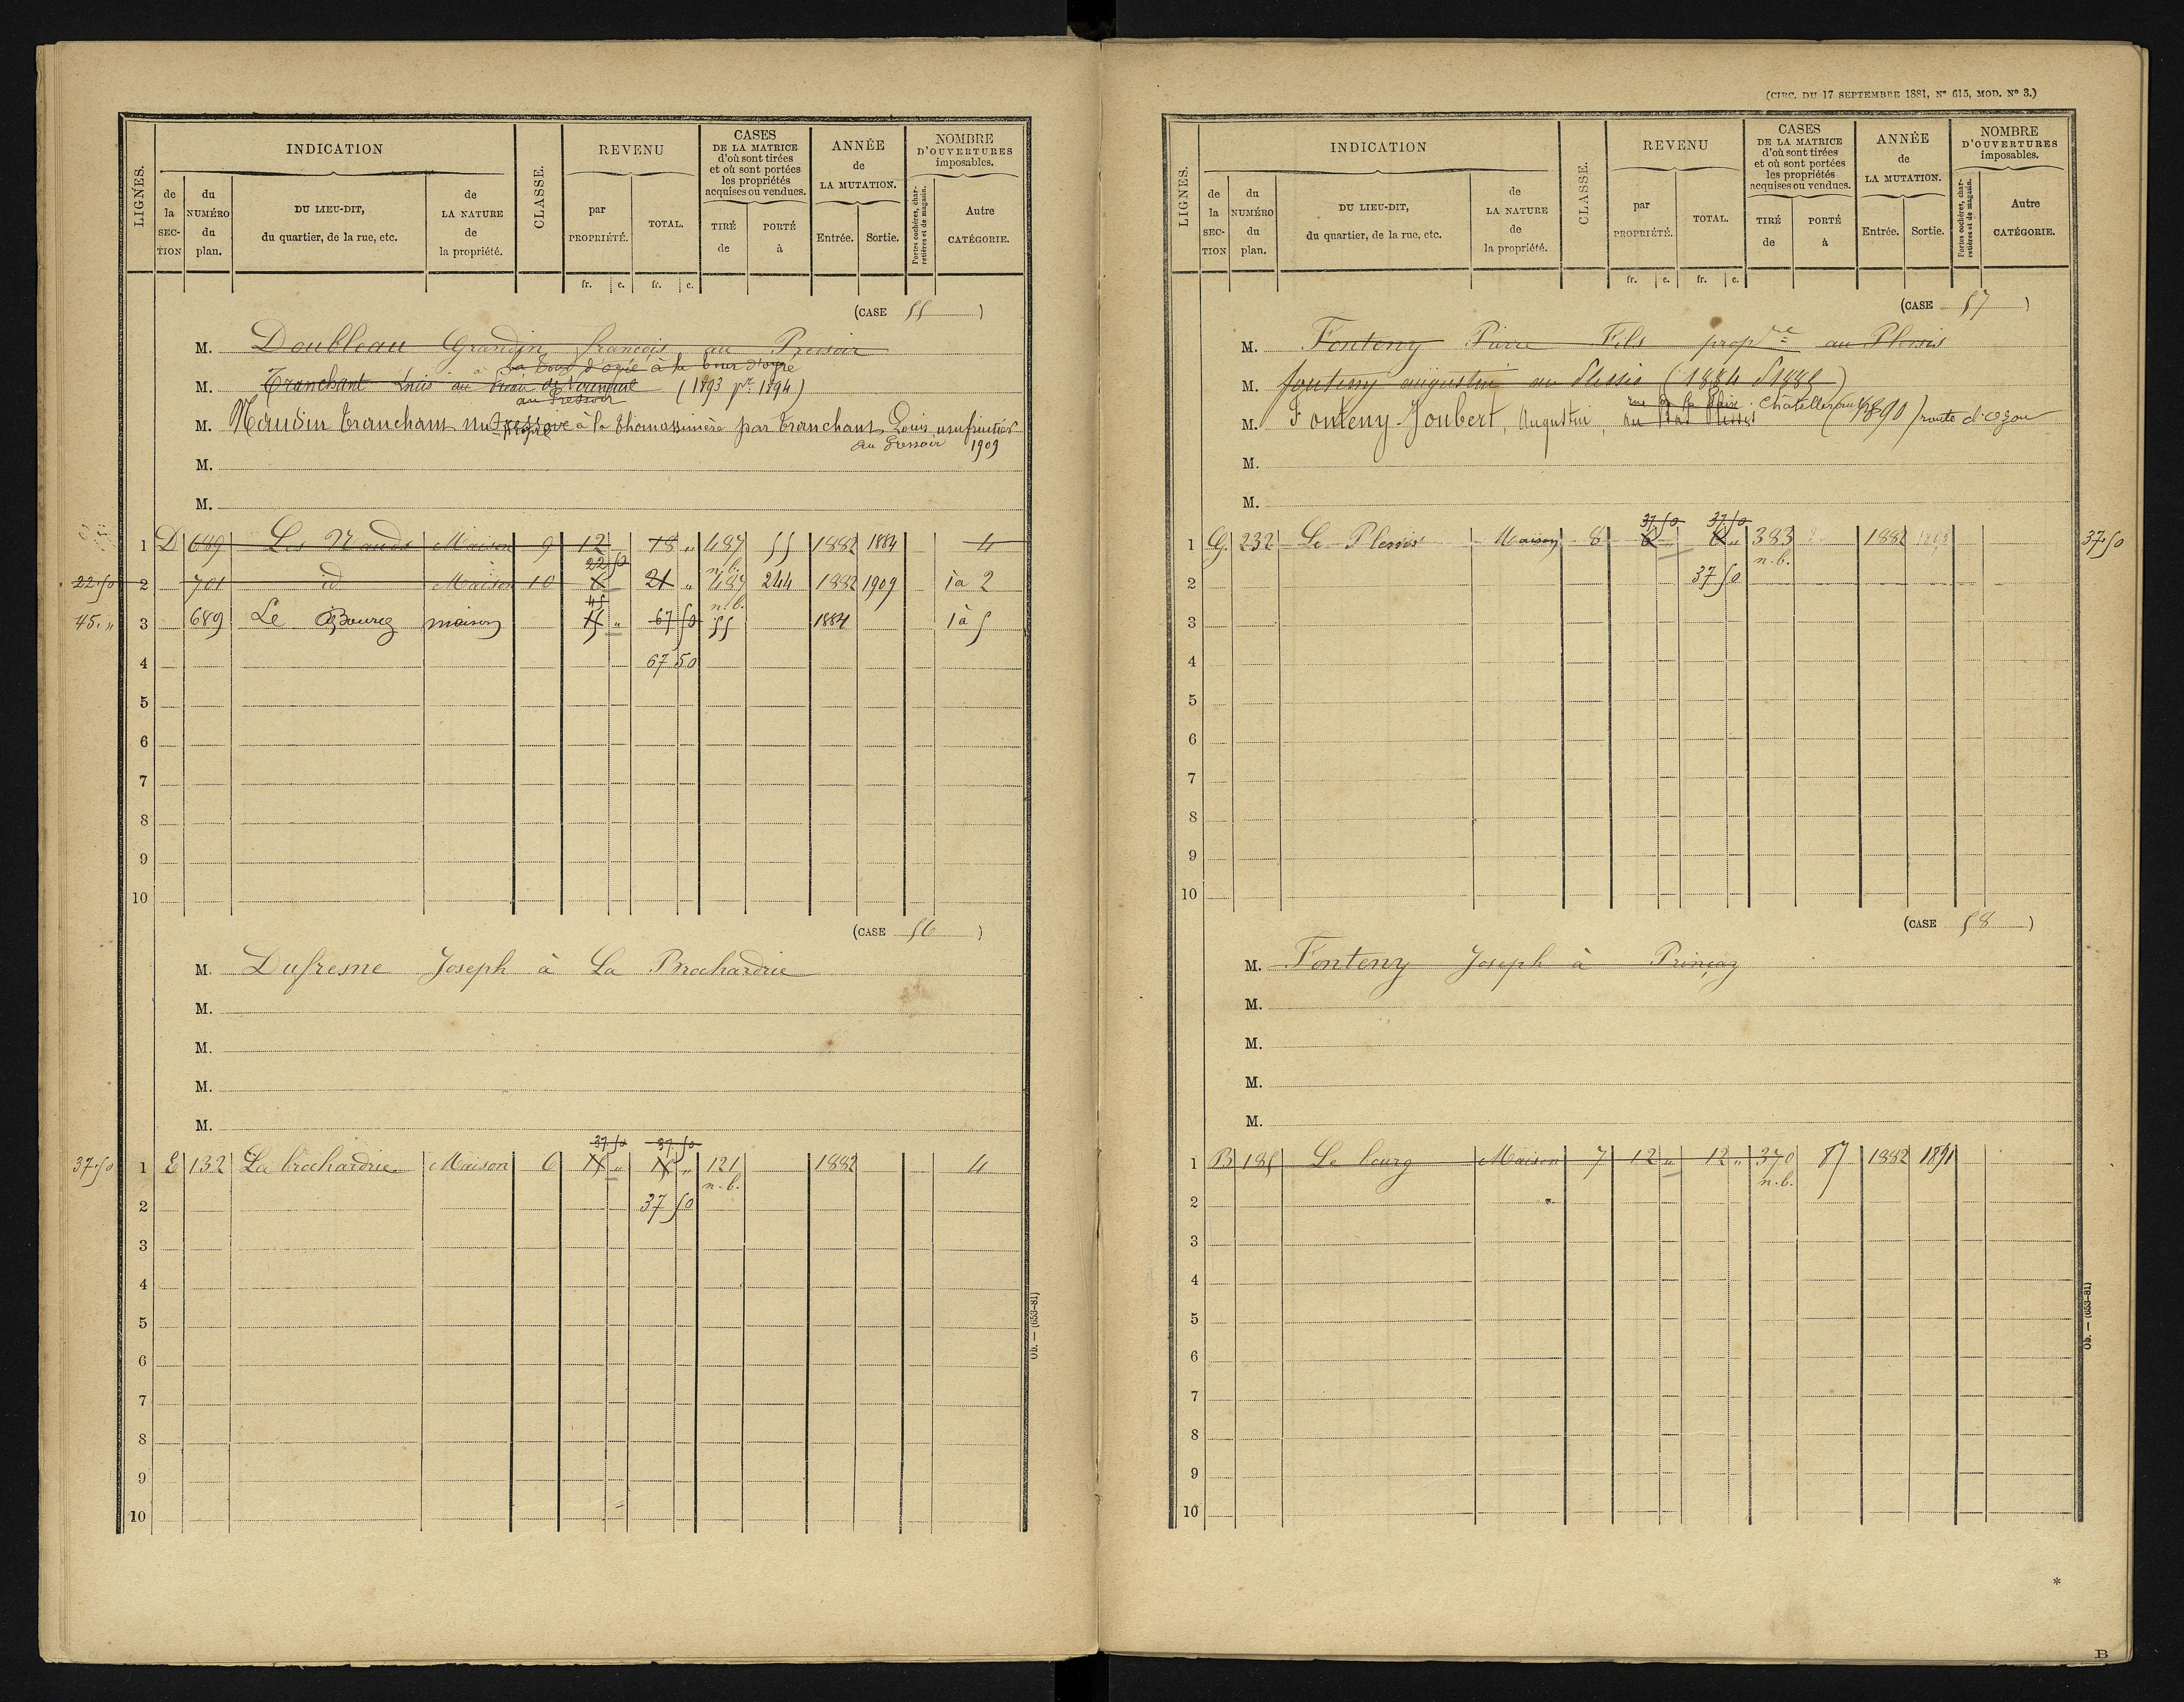 LIGNES.
INDICATION
de la SECTION
du NUMÉRO du plan.
DU LIEU-DIT, du quartier, de la rue, etc.
de LA NATURE de la propriété.
CLASSE.
REVENU
par PROPRIÉTÉ.
TOTAL.
CASES DE LA MATRICE d'où sont tirées et où sont portées les propriétés acquises ou vendues.
TIRÉ de
PORTÉ à
ANNÉE de LA MUTATION.
Entrée.
Sortie.
NOMBRE D'OUVERTURES imposables.
Portes cochères, charretières et de magasin.
Autre CATÉGORIE.
fr. c. fr. c.
(CASE 55)
M. Doubleau Grandin françois au Pressoir
à la Tour d'ogre
M. Tranchant Louis (1893 pr 1894)
au Pressoir
M. Naudin Tranchant nu-propre à la thomassinière par Tranchant Louis usufruitier
au Pressoir 1909
M.
M.
1 D 689 Les Nauds Maison 9 12 18 " 487 55 1882 1884 4
n.b.
22.50 22 50
2 701 id Maison 10 6 21 " 487 244 1882 1909 1 à 2
n.b.
45. " 45
3 689 Le Bourg maison 15 " 67 50 55 1884 1 à 5
4 67 50
5
6
7
8
9
10
(CASE 56)
M. Dufresne Joseph à La Brochardrie
M.
M.
M.
M.
37.50 37.50 37.50
1 E 132 La brochardrie Maison 6 15 " 15 " 121 1882 4
n.b.
2 37 50
3
4
5
6
7
8
9
10
Ob. — (653-81)
(CIRC. DU 17 SEPTEMBRE 1881, N° 615, MOD. N° 3.)
LIGNES.
INDICATION
de la SECTION
du NUMÉRO du plan.
DU LIEU-DIT, du quartier, de la rue, etc.
de LA NATURE de la propriété.
CLASSE.
REVENU
par PROPRIÉTÉ.
TOTAL.
CASES DE LA MATRICE d'où sont tirées et où sont portées les propriétés acquises ou vendues.
TIRÉ de
PORTÉ à
ANNÉE de LA MUTATION.
Entrée.
Sortie.
NOMBRE D'OUVERTURES imposables.
Portes cochères, charretières et de magasin.
Autre CATÉGORIE.
fr. c. fr. c.
(CASE 57)
M. Fonteny Pierre Fils propre au Plessis
M. fonteny augustin au Plessis (1884 P 1885)
M. Fonteny-Joubert, Augustin, Châtellerault (1890) route d'ozon
M.
M.
37.50 37.50
1 G. 232 Le Plessis Maison 8 6 6 " 383 1882 37.50
n.b.
2 37 50
3
4
5
6
7
8
9
10
(CASE 58)
M. Fonteny Joseph à Prinçay
M.
M.
M.
M.
1 B 185 Le bourg Maison 7 12 " 12 " 370 87 1882 1891
n.b.
2
3
4
5
6
7
8
9
10
Ob. — (653-81)
*
B